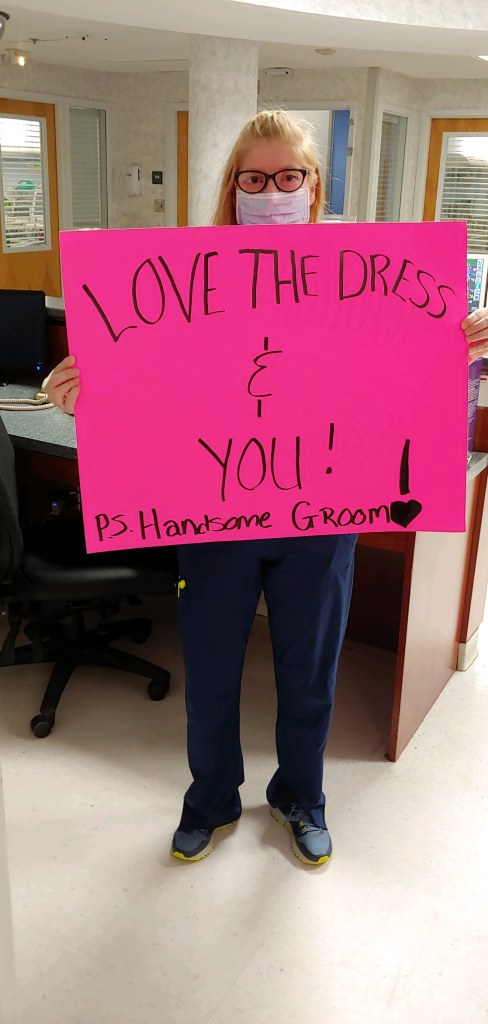 LOVE THE DRESS
&
YOU!
PS. Handsome Groom!